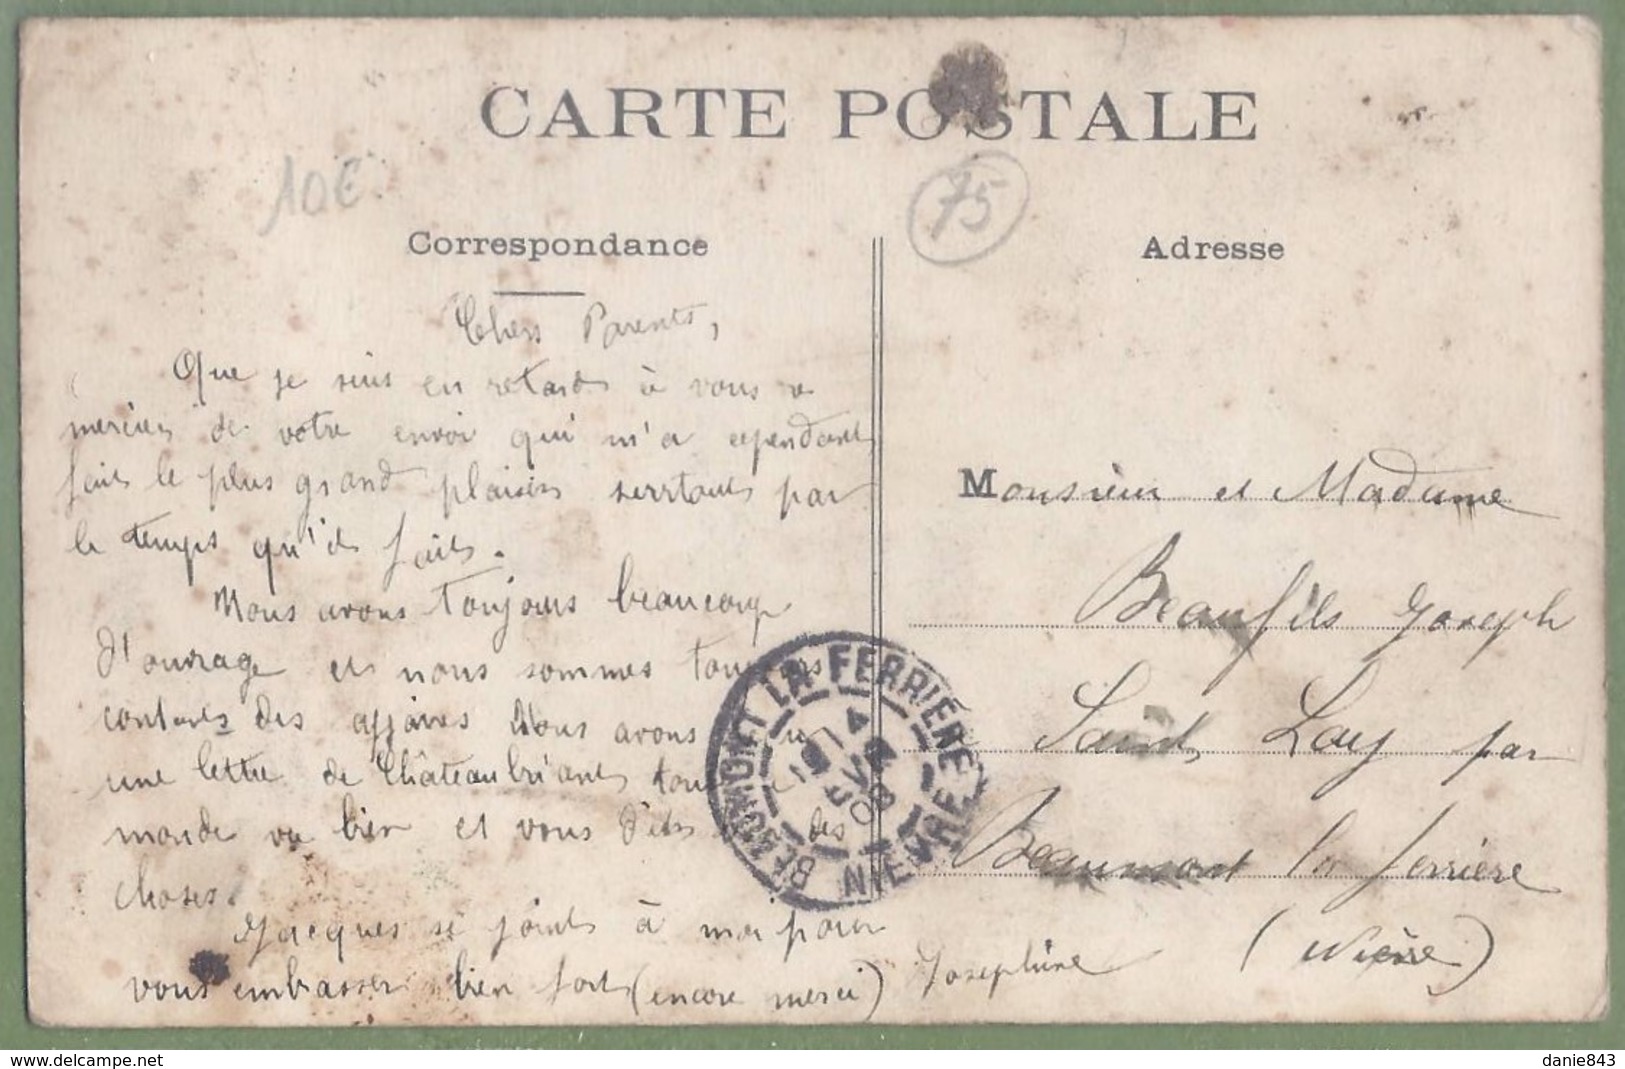 CARTE POSTALE
10€
75
Correspondance
Adresse
Chers Parents,
Que je suis en retard à vous re
mercier de votre envoi qui m'a cependant
fait le plus grand plaisir surtout par
le temps qu'il fait.
Nous avons toujours beaucoup
d'ouvrage et nous sommes toujours
contents des affaires Nous avons
une lettre de Châteaubriant tout le
monde va bien et vous dit bien des
choses.
Jacques se joint à moi pour
vous embrasser bien fort (encore merci) Joséphine
Monsieur et Madame
Beaufils Joseph
Saint Lay par
Beaumont la ferrière
(Nièvre)
BEAUMONT LA FERRIÈRE
NIÈVRE
danie843